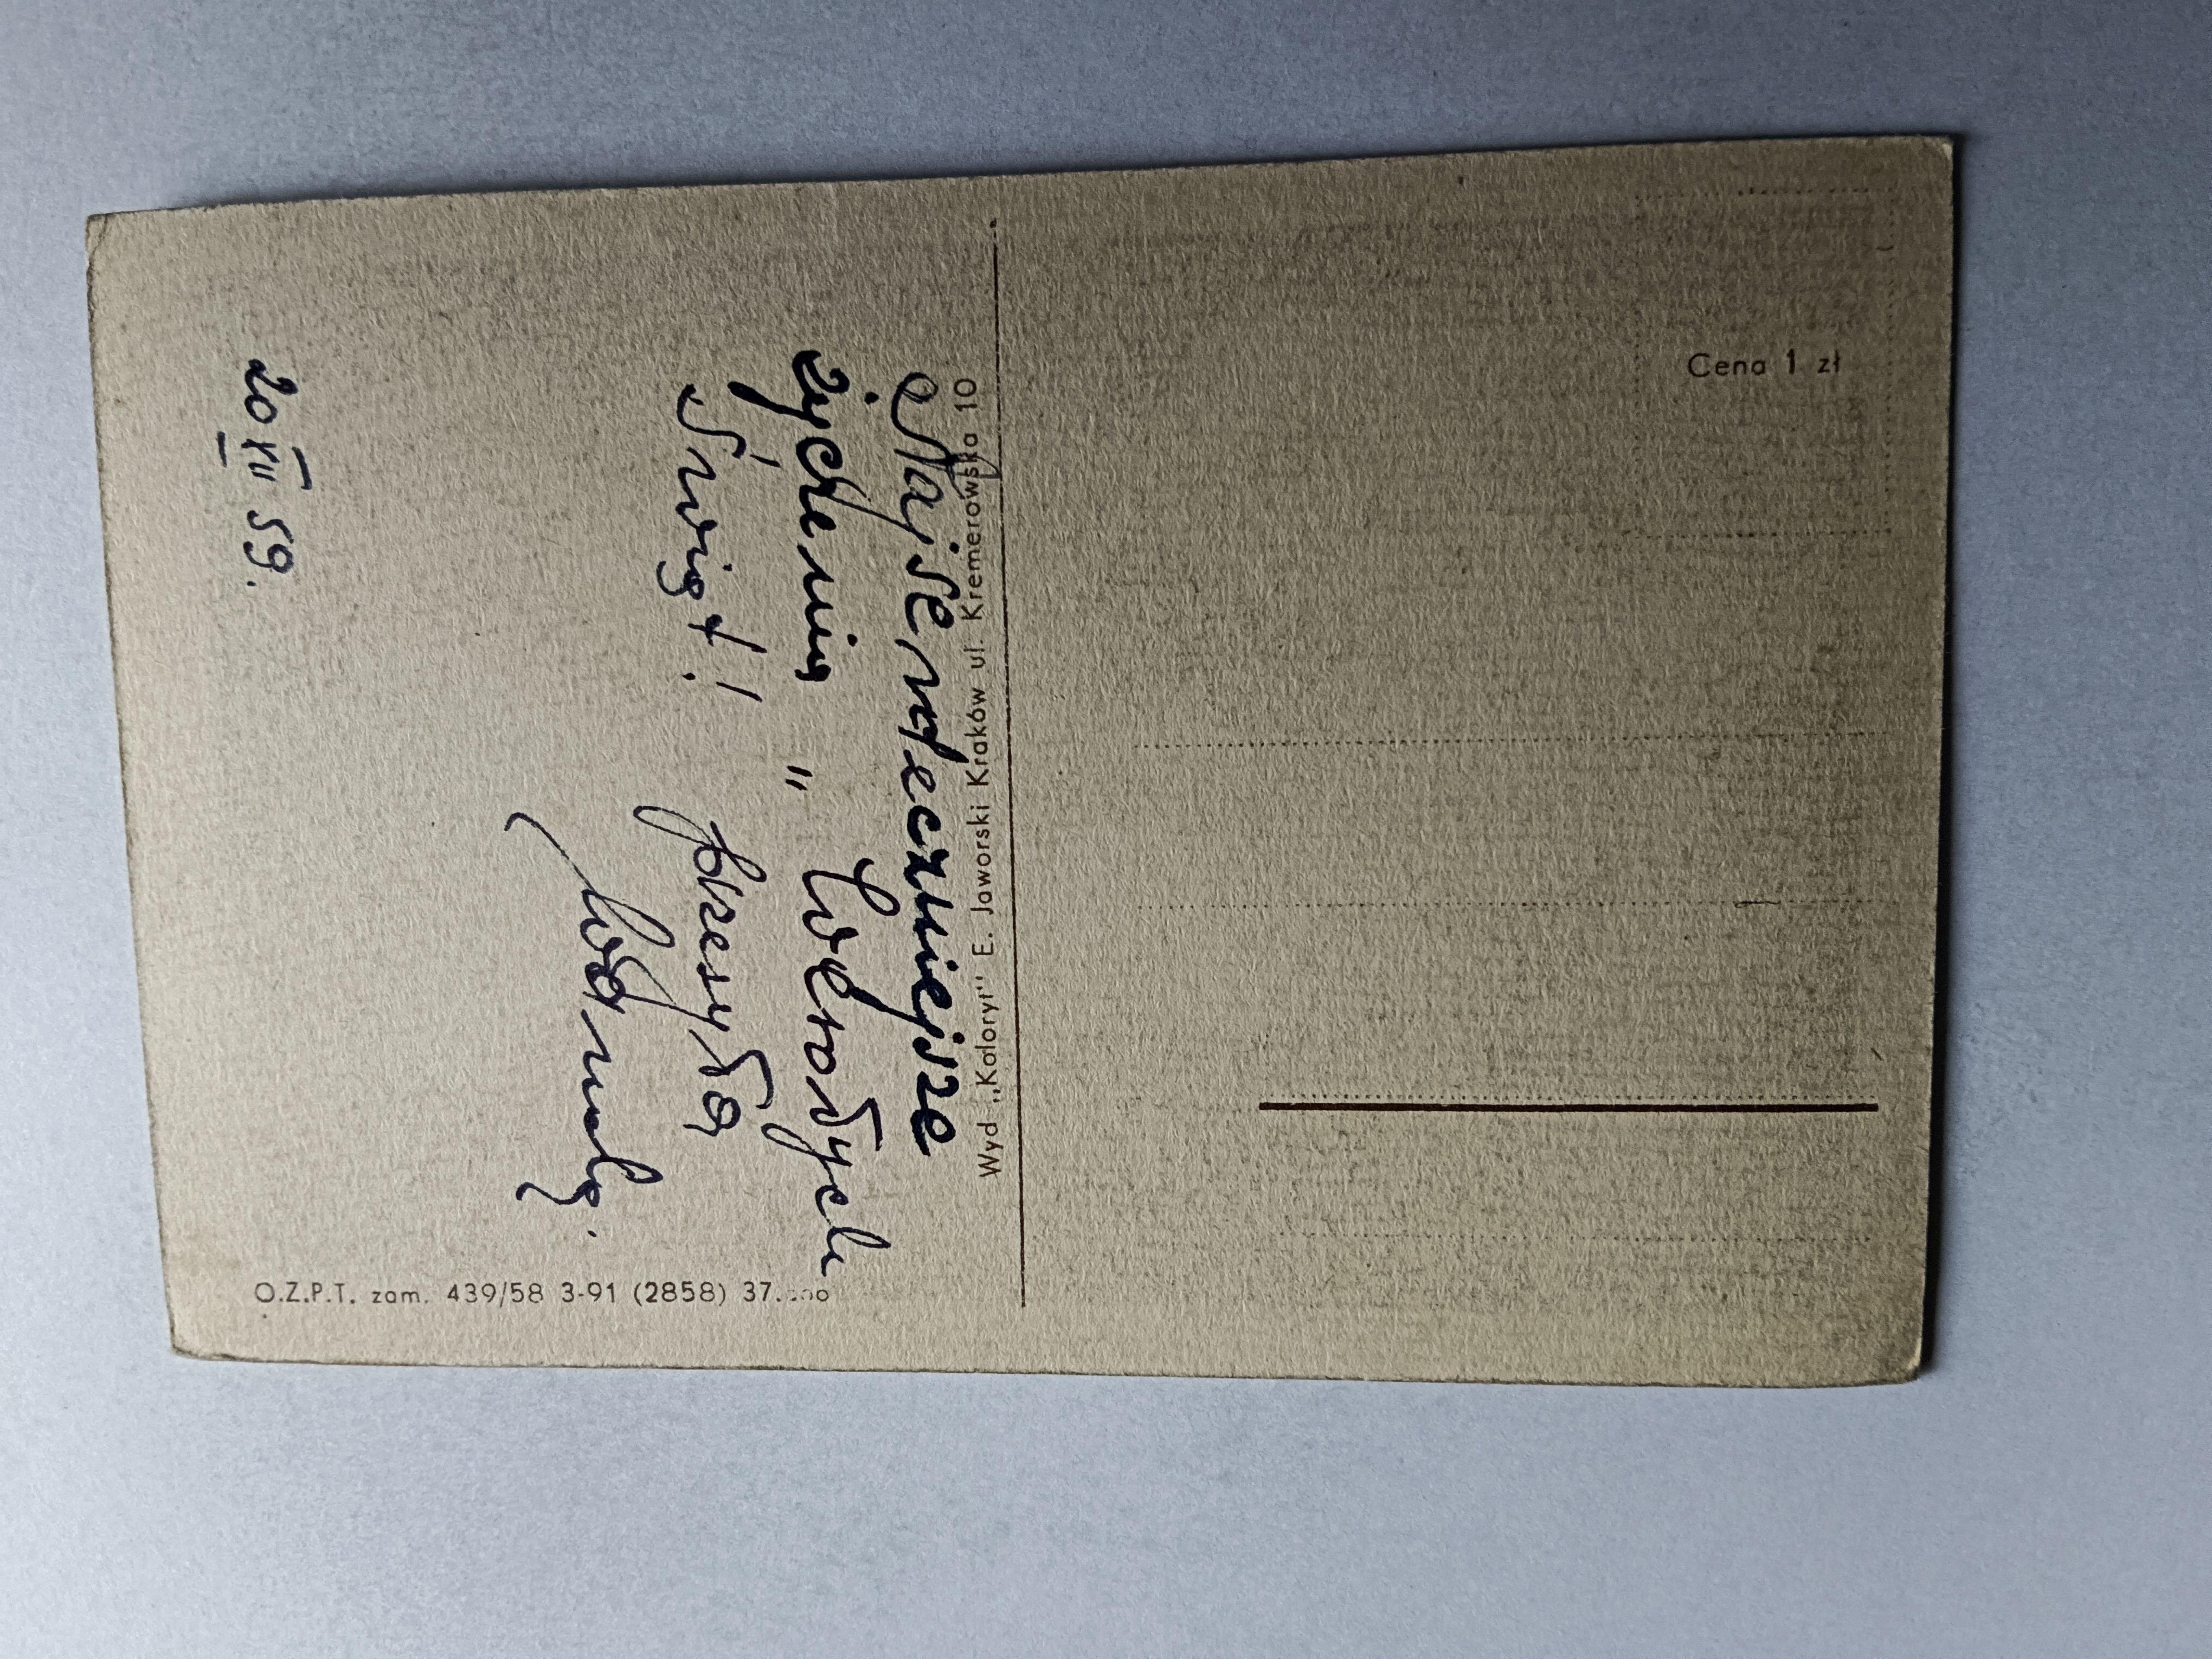 Najserdeczniejsze
życzenia „ Wesołych
Świąt!!
przesyła
20 XII 59.
Wyd „Koloryt" E. Jaworski Kraków ul. Kremerowska 10
O.Z.P.T. zam. 439/58 3-91 (2858) 37.
Cena 1 zł